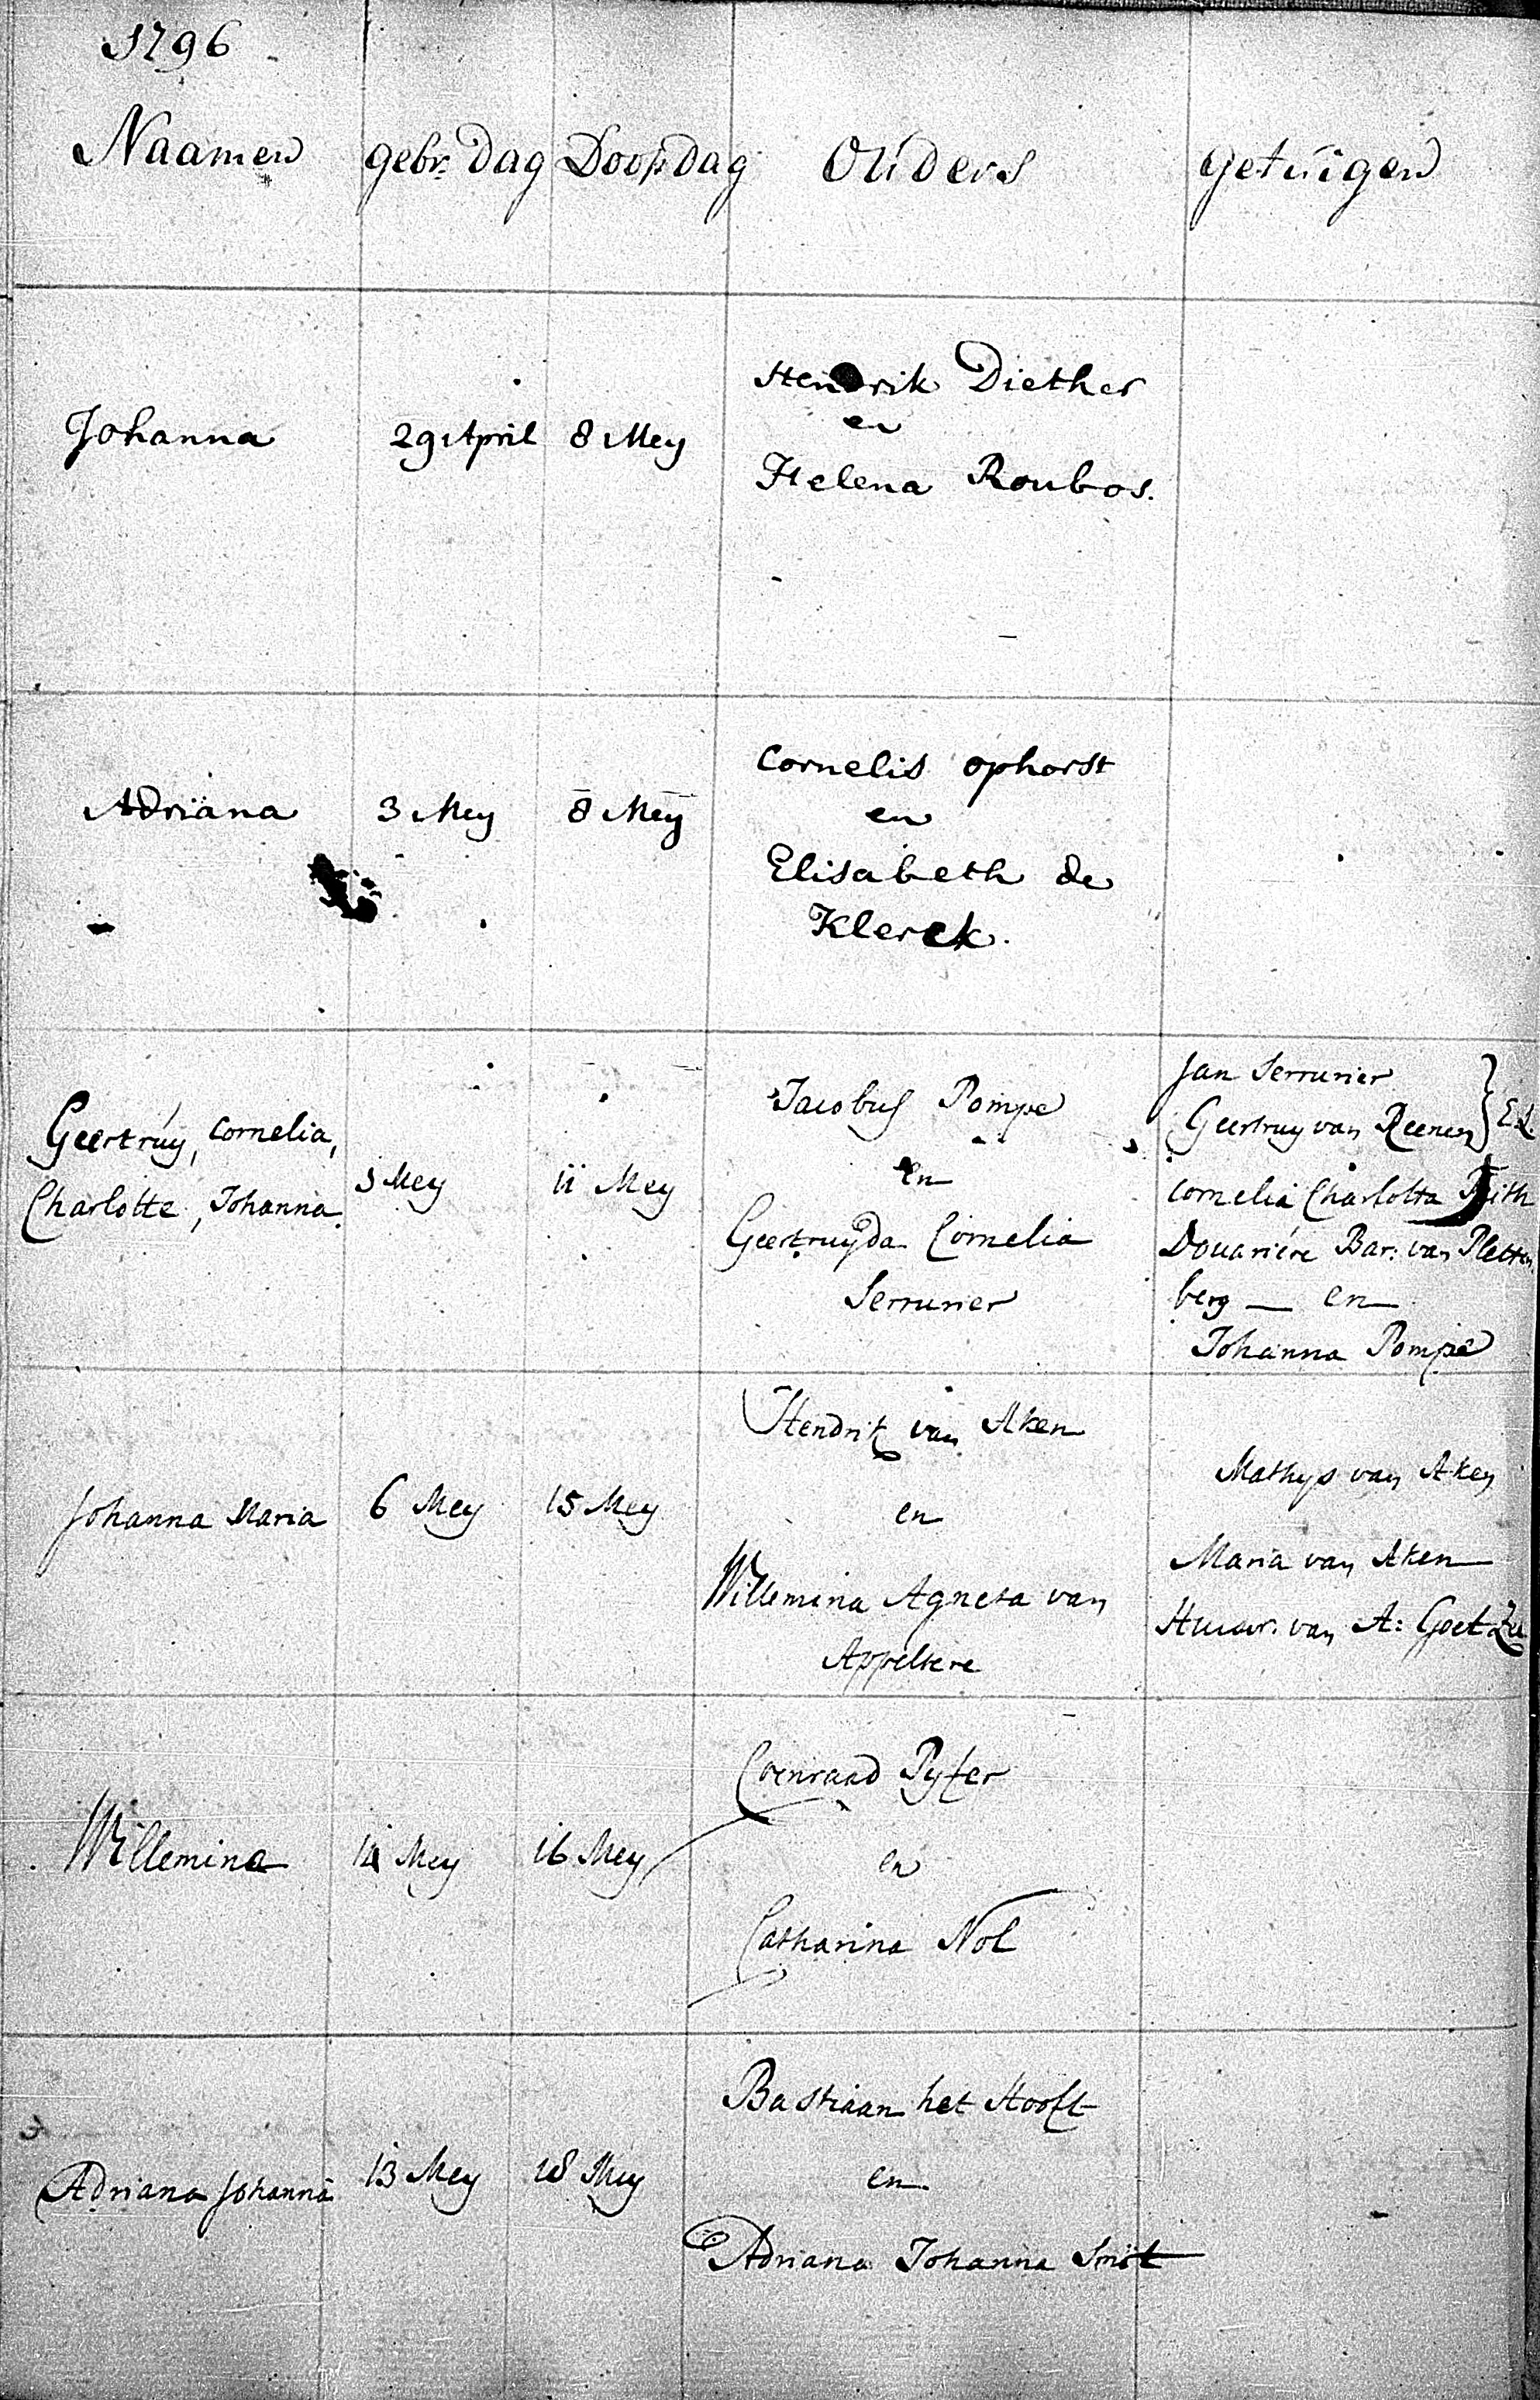 1796
Naamen gebr: Dag Doop Dag Ouders getuigen
Hendrik Diether
Johanna 29 April 8 Mey en
Helena Roubos.
Cornelis ophorst
Adriana 3 Mey 8 Mey en
Elisabeth de
Klerck.
Geertruy, Cornelia,
Charlotte, Johanna.
5 Mey
11 Mey
Jacobus Pompe
en
Geertruyda Cornelia
Serrurier
Jan Serrurier
Geertruy van Reenen } El.
Cornelia Charlotta Feith
Douariére Bar: van Pletten
berg — en
Johanna Pompe
Johanna Maria
6 Mey
15 Mey
Hendrik van Aken
en
Willemina Agneta van
Appeltere
Mathys van Aken
Maria van Aken
Huisvr: van A: Goetzee
Coenraad Pyfer
Willemina Mey 16 Mey en
Catharina Nol
Bastiaan het Hooft
Adriana Johanna 13 Mey 18 Mey en
Adriana Johanna Smit